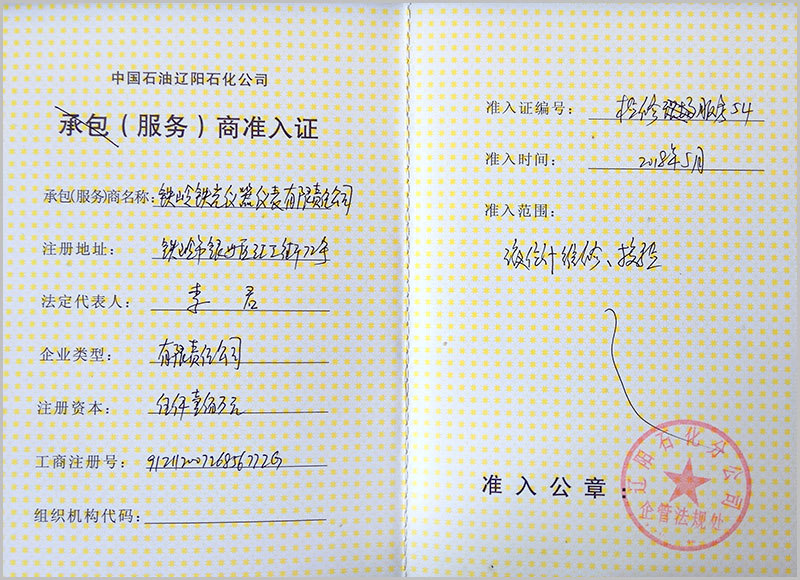 中国石油辽阳石化公司
承包（服务）商准入证
承包(服务)商名称：铁岭铁光仪器仪表有限责任公司
注册地址：铁岭市银州区汇工街72号
法定代表人：李君
企业类型：有限责任公司
注册资本：
工商注册号：91211200726856772G
组织机构代码：
准入证编号：检修现场服务54
准入时间：2018年5月
准入范围：
液位计维修、校验
准入公章：
辽阳石化分公司
企管法规处